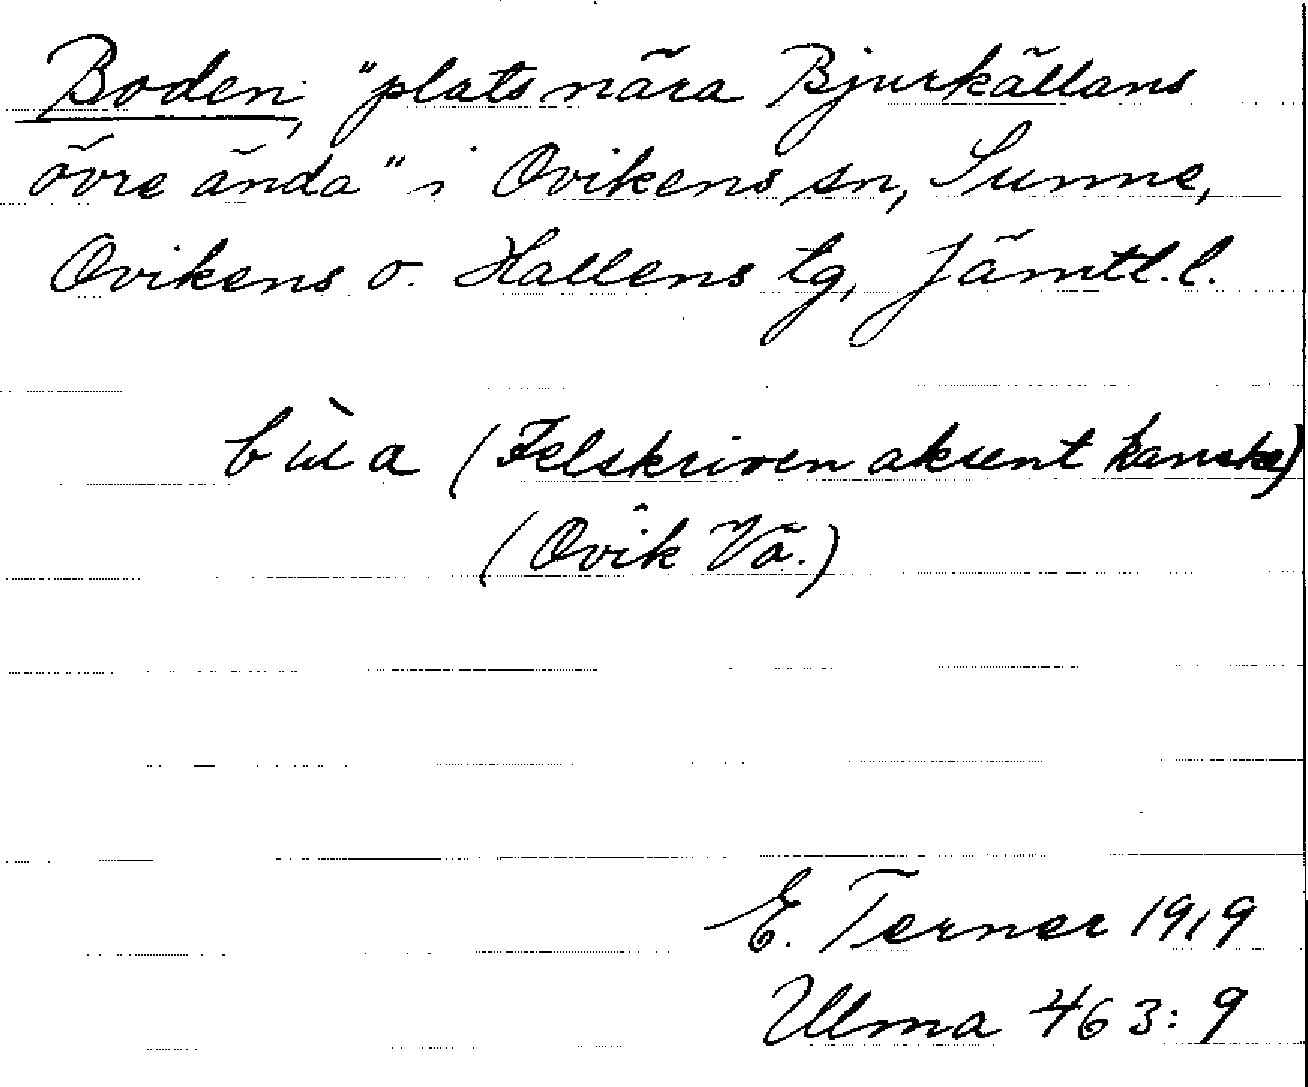 Boden, "plats nära Bjurkällans
övre ända" i Ovikens sn, Sunne,
Ovikens o. Hallens tg, Jämtl. l.
(Felskriven aksent kanske)
(Ovik Vä.)
E. Terner 1919
Ulma 463:9